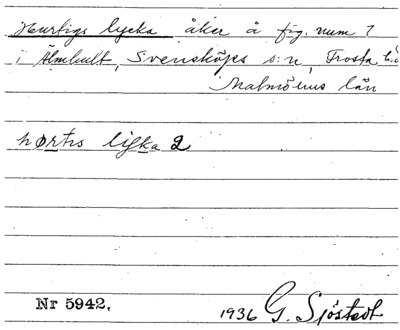 Hurtigs lycka åker å fig. num 7
i Älmhult, Svensköps s:n, Frosta h:d
Malmöhus län
hørtıs lyka 2
Nr 5942.
1936 G. Sjöstedt